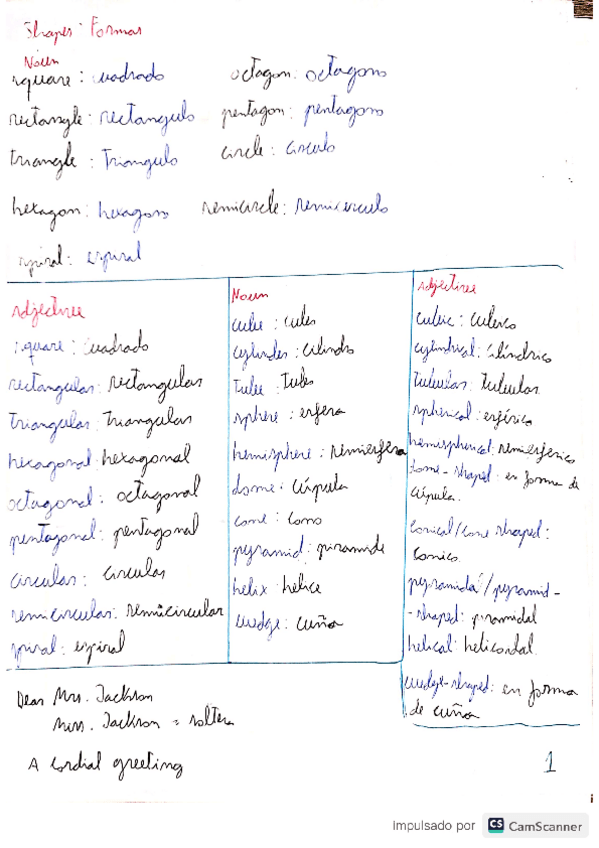 Shapes · Formas
Noun
square : cuadrado octagon : octagono
rectangle : rectangulo pentagon : pentagono
triangle : Triangulo circle : circulo
hexagon : hexagono semicircle : semicirculo
spiral : espiral
Adjective
square : cuadrado
rectangular : rectangular
triangular : Triangular
hexagonal : hexagonal
octagonal : octagonal
pentagonal : pentagonal
circular : circular
semicircular : semicircular
spiral : espiral
Noun
cube : cubo
cylinder : cilindro
Tube : Tubo
sphere : esfera
hemisphere : semiesfera
dome : cúpula
cone : cono
pyramid : piramide
helix : helice
wedge : cuña
Adjective
cubic : cubico
cylindrical : cilíndrico
tubular : tubular
spherical : esférico
hemispherical : semiesférico
dome-shaped : en forma de
cúpula.
conical/cone shaped :
conico
pyramidal/pyramid-
-shaped : piramidal
helical : helicoidal
wedge-shaped : en forma
de cuña
Dear Mrs. Jackson
Miss. Jackson = soltera
A cordial greeting
1
Impulsado por CS CamScanner